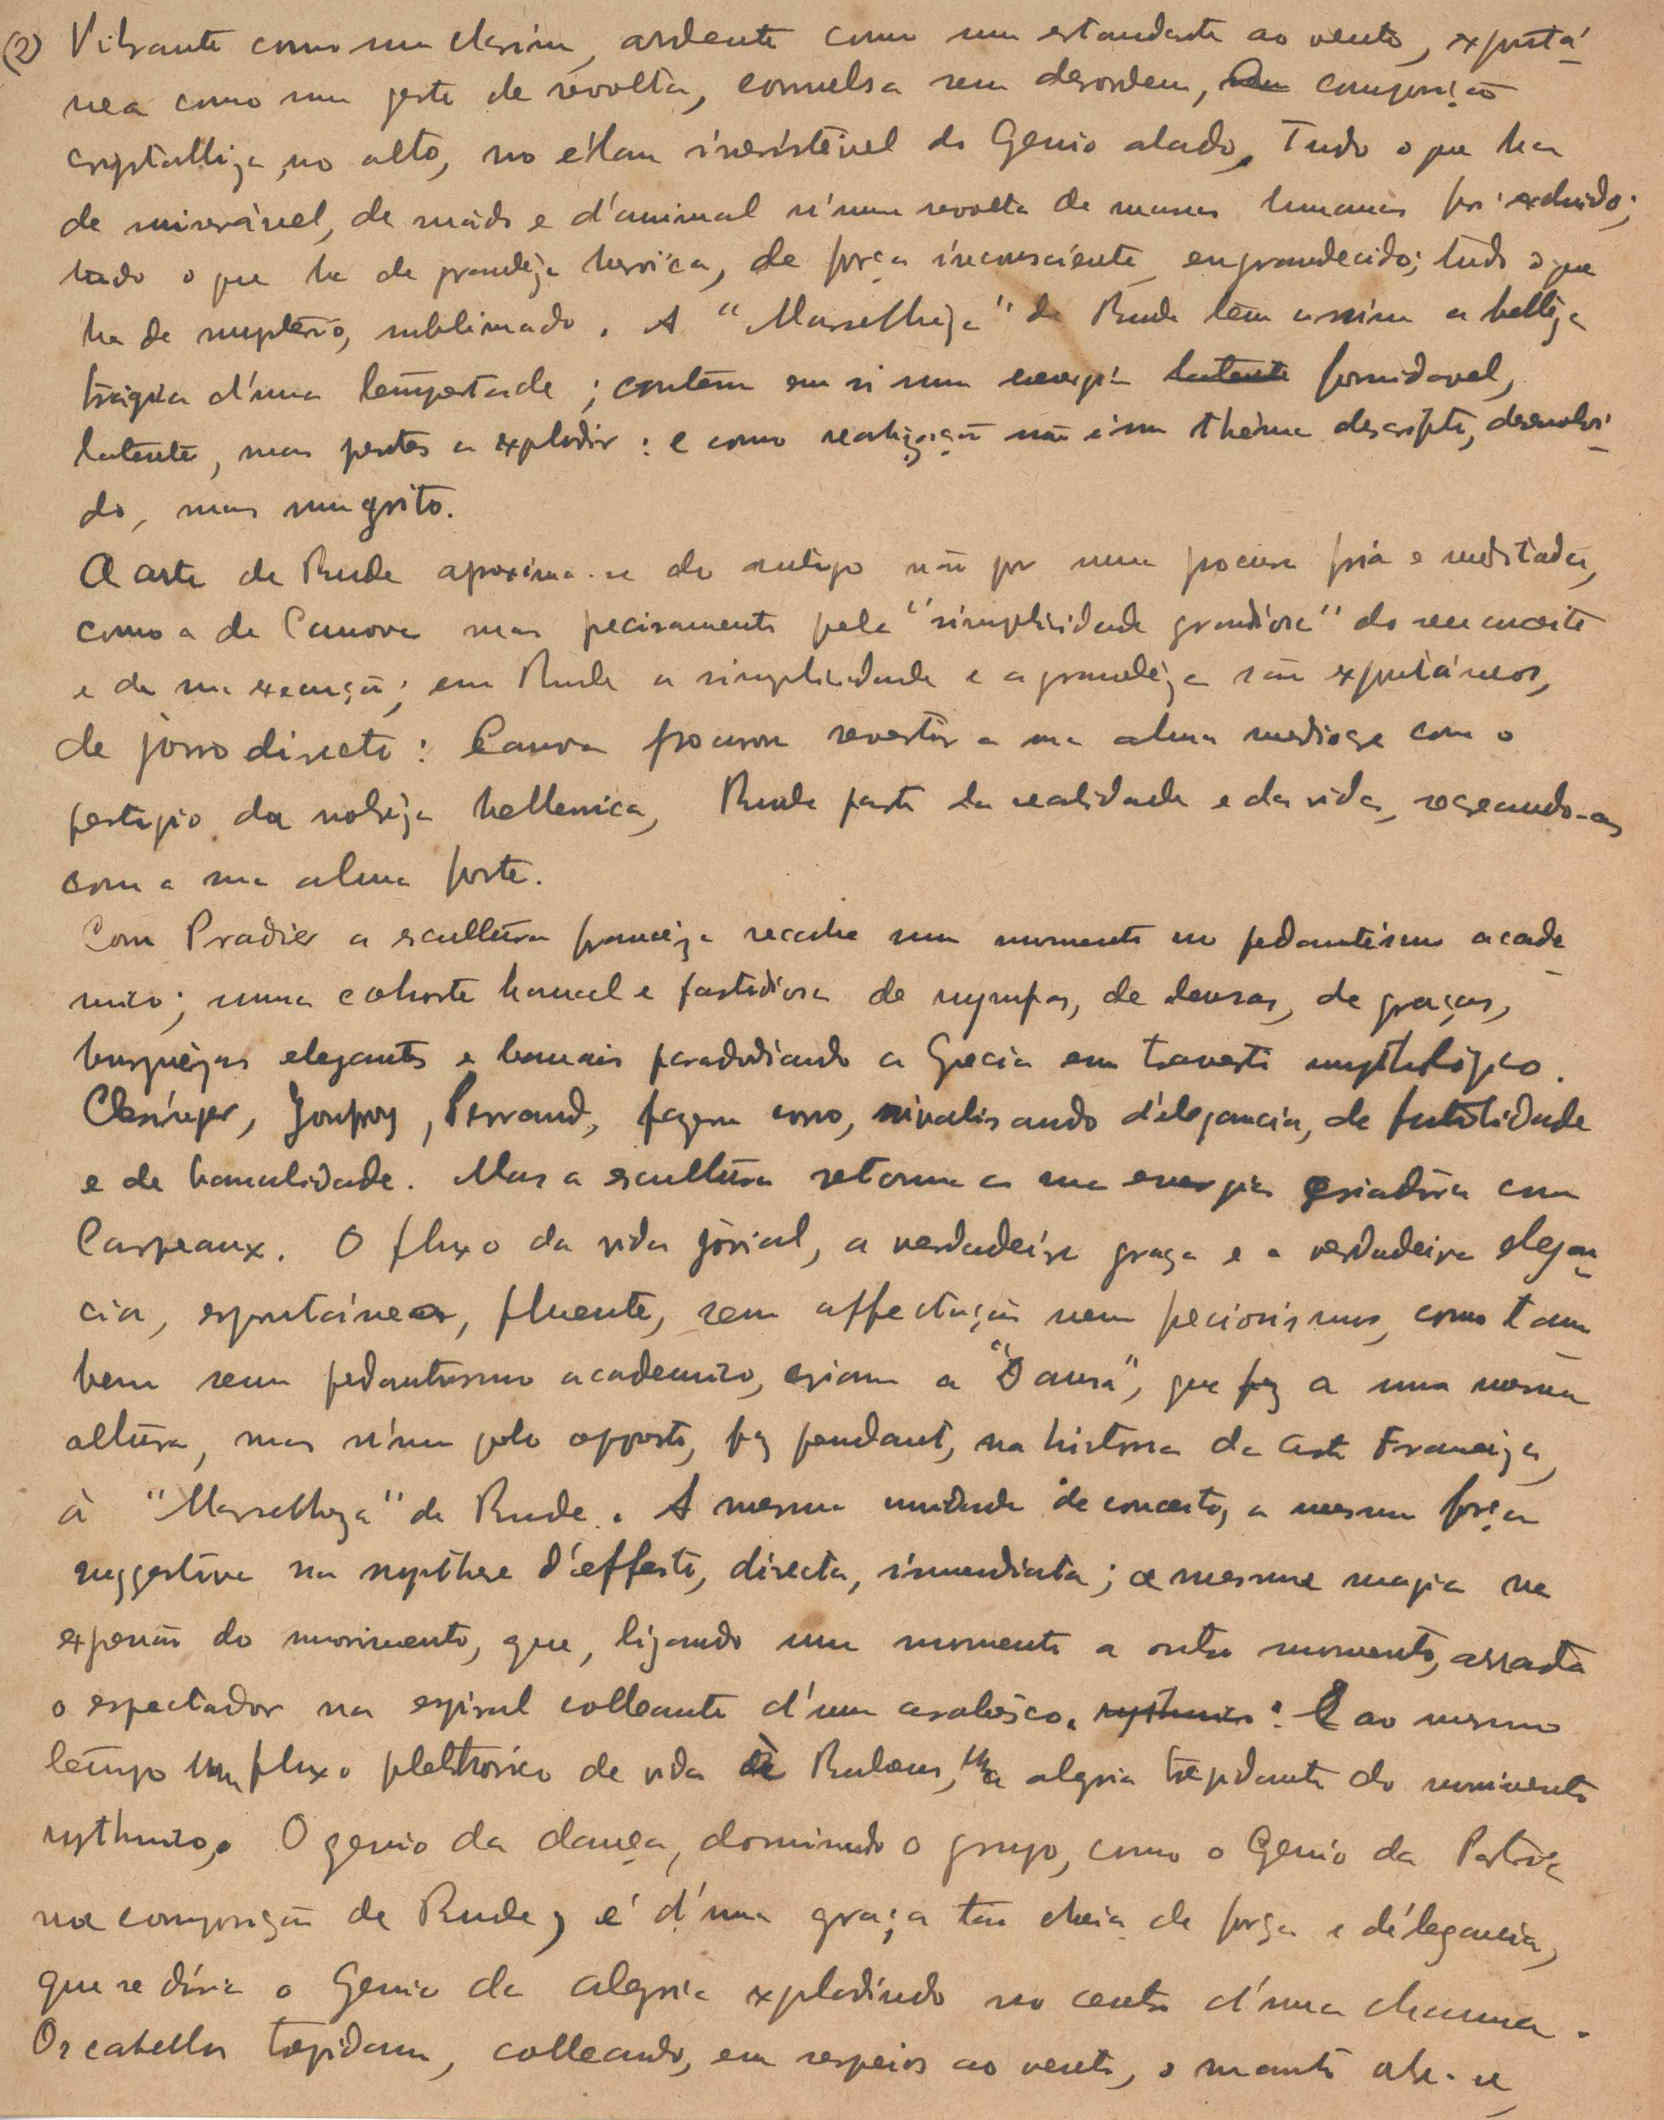 (2) Vibrante como um clarim, ardente como um estandarte ao vento, expontá-
nea como um gesto de revolta, convulsa sem desordem, composição
crystalliza, no alto, no élan irresistivel do Genio alado. Tudo o que ha
de miseravel, de e d'animal n'uma revolta de massas humanas foi excluido;
tudo o que ha de grandeza heroica, de força inconsciente, engrandecido; tudo o que
ha de mysterio, sublimado. A "Marselheza" de Rude tem assim a belleza
trágica d'uma tempestade; contém em si uma energia latente formidavel,
latente, mas prestes a explodir: e como realização não é um thema descripto, desenvolvi-
do, mas um grito.
A arte de Rude aproxima-se do antigo não por uma procura fria e meditada,
como a de Canova mas precisamente pela "simplicidade grandiosa" do seu conceito
e da sua execução; em Rude a simplicidade e a grandeza são expontáneos,
de jorro directo: Canova procura revestir a sua alma mediocre com o
prestigio da nobreza hellenica, Rude parte da realidade e da vida, recreando-as
com a sua alma forte.
Com Pradier a escultura franceza recahe um momento no pedantismo acade-
mico; numa cohorte banal e fastidiosa de nymfas, de deusas, de graças,
burguezas elegantes e banais parodiando a Grecia em travesti mythologico.
Clesinger, Jouffroy, Perraud, fazem isso, rivalisando d'elegancia, de futilidade
e de banalidade. Mas a escultura retoma a sua energia criadora com
Carpeaux. O fluxo da vida jovial, a verdadeira graça e a verdadeira elegan-
cia, espontánea, fluente, sem affectação nem preciosismos, como tam-
bem sem pedantismo academico, criam a "Dansa", que faz a uma mesma
altura, mas n'um polo opposto, faz pendant, na historia da arte Franceza,
á "Marselheza" de Rude. A mesma unidade de conceito, a mesma força
suggestiva na synthese d'effeito, directa, immediata; a mesma magia na
expressão do movimento, que, ligando um momento a outro momento, arrasta
o espectador na espiral colleante d'um arabesco. rythmico: E ao mesmo
tempo um fluxo plethorico de vida Rubens, uma alegria trepidante do movimento
rythmico. O genio da dança, dominando o grupo, como o Genio da Patria
na composição de Rude, é d'uma graça tão cheia de força e d'elegancia,
que se diria o Genio da alegria explodindo no centro d'uma chamma.
Os cabellos trepidam, colleando, em serpeios ao vento, o manto abre-se,